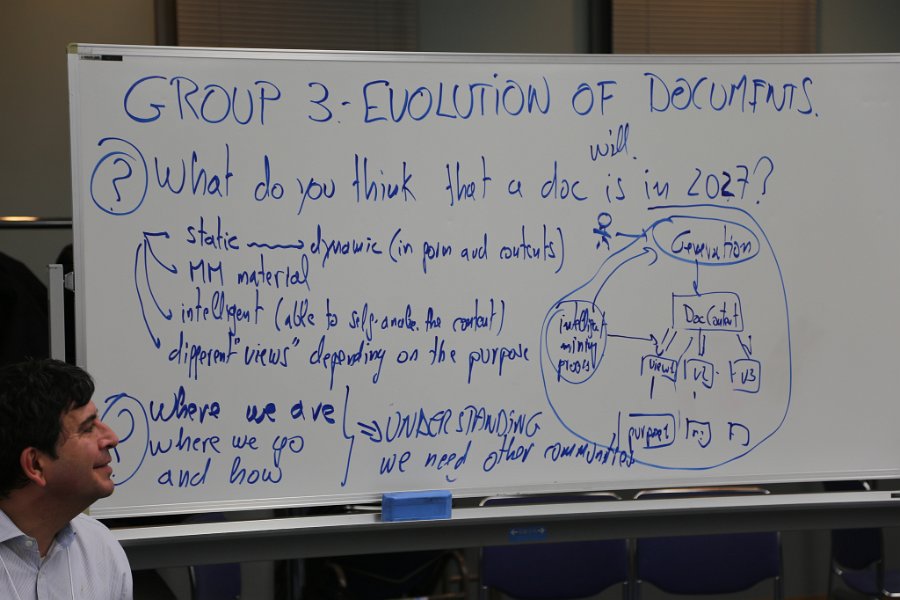 GROUP 3: EVOLUTION OF DOCUMENTS.
will.
? What do you think that a doc is in 2027?
static → dynamic (in form and contents)
MM material
intelligent (able to self-analize the content)
different "views" depending on the purpose
Generation
Doc Content
intelligent
mining
view1 v2 v3
purpose1
? where we are
where we go
and how
⇒ UNDERSTANDING
we need other communities